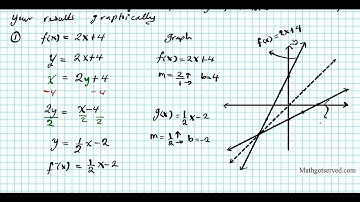 your results graphically
① f(x) = 2x+4
y = 2x+4
x = 2y+4
-4 -4
2y/2 = x-4/2 2
y = 1/2 x-2
f⁻¹(x) = 1/2 x-2
graph
f(x) = 2x+4
m = 2↑/1→ b=4
g(x) = 1/2 x-2
m = 1↑/2→ b=-2
f(x) = 2x+4
y
Mathgotserved.com